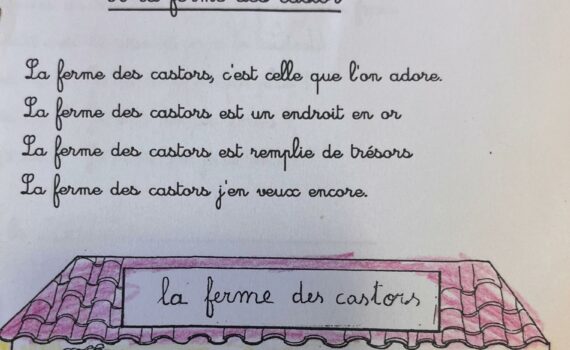 la ferme des castor
La ferme des castors, c'est celle que l'on adore.
La ferme des castors est un endroit en or
La ferme des castors est remplie de trésors
La ferme des castors j'en veux encore.
la ferme des castors